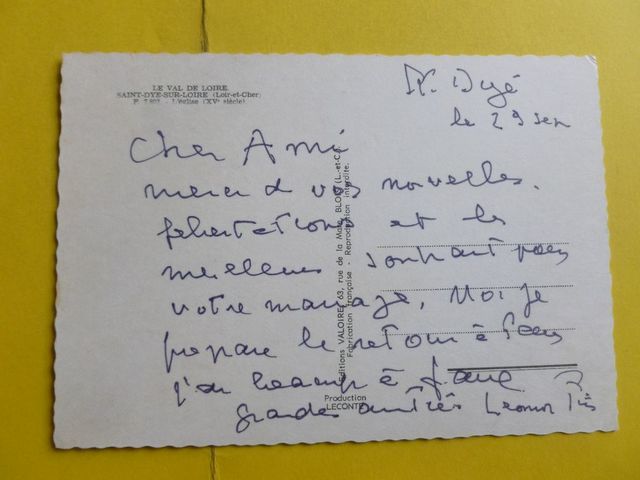 LE VAL DE LOIRE
SAINT-DYE-SUR-LOIRE (Loir-et-Cher)
L'église (XVe siècle)
St. Dyé
le 29 sen
Cher Ami
merci de vos nouvelles.
félicitations et les
meilleurs souhaits pour
votre mariage. Moi je
prépare le retour à Paris
j'ai beaucoup à faire
grandes amitiés Leonor
Editions VALOIRE, 63, rue de la Mare, BLOIS (L.-et-C.)
Fabrication Française - Reproduction interdite.
Production
LECONTE